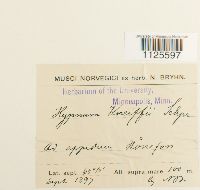 1125597
MUSCI NORVEGICI ex herb. N. BRYHN.
Herbarium of the University,
Minneapolis, Minn.
Hypnum Kneiffii Schpr
Ad oppidum Hönefos
Lat. sept. 60° Alt. supra mare 100 m.
Sept. 1897